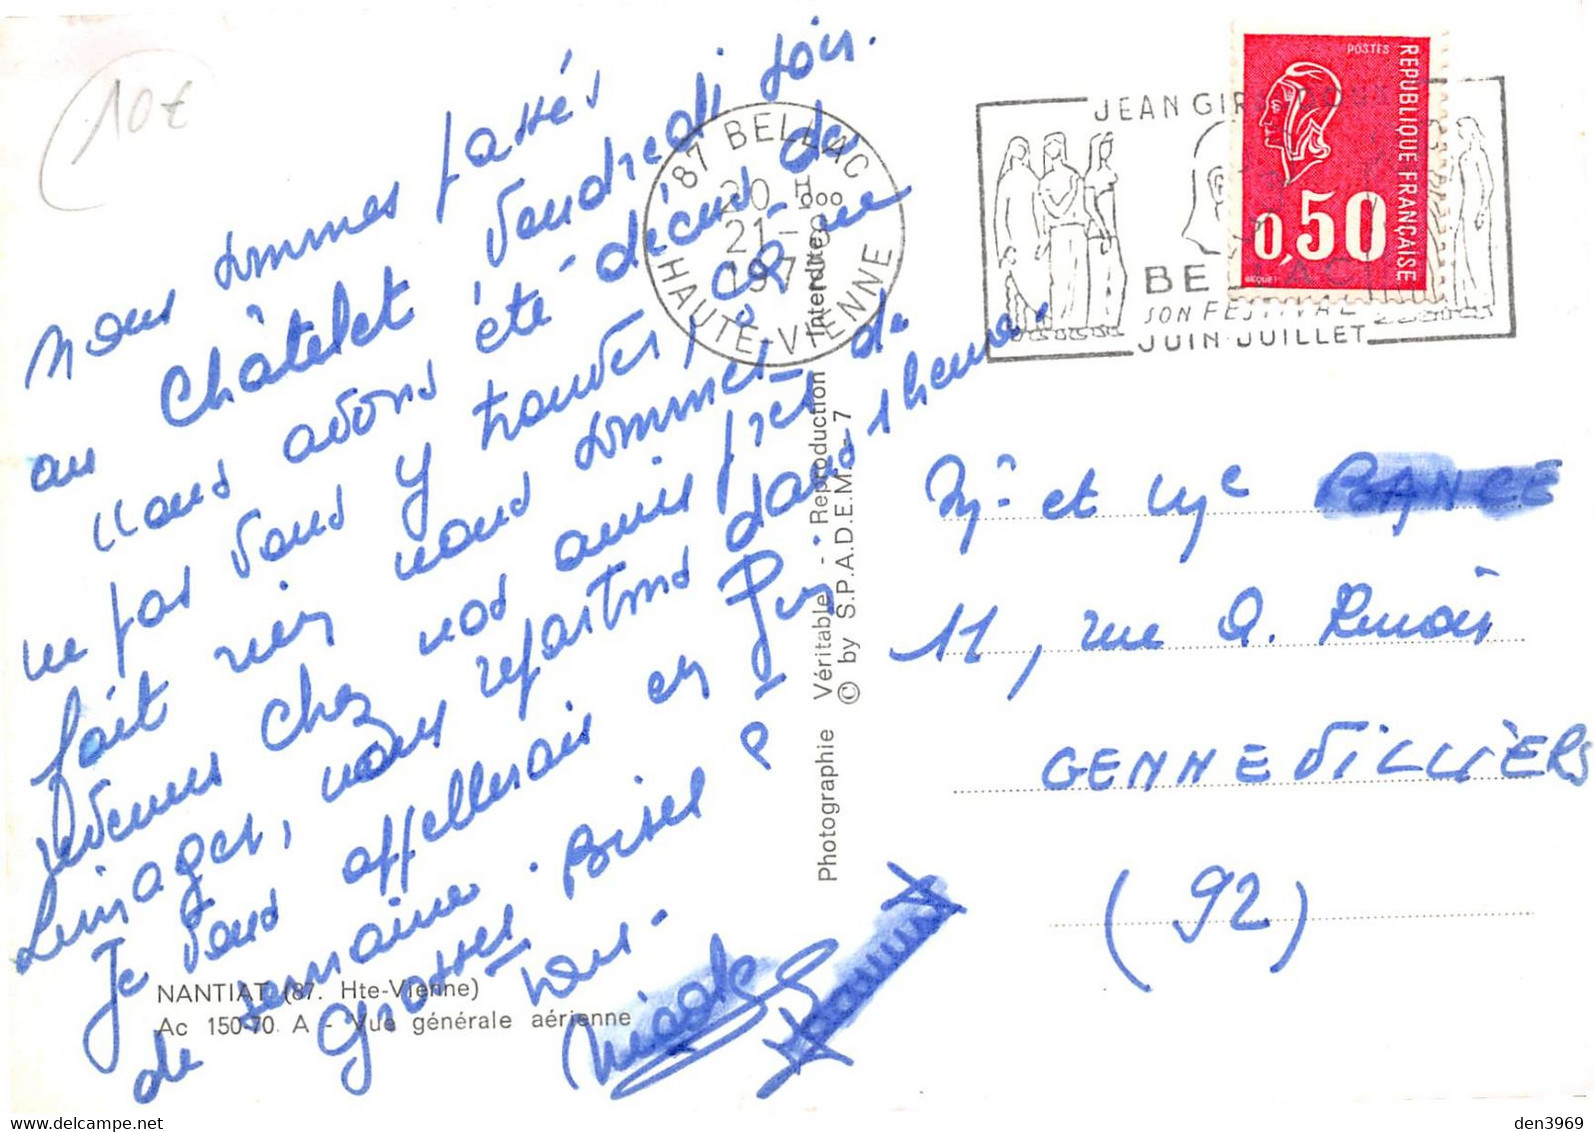 10€
Nous sommes passés
au Châtelet Vendredi soir.
nous avons été décus de
ne pas vous y trouver, ça ne
fait rien nous sommes
revenus chez nos amis près de
Limoges, nous repartons dans 1 heure.
Je vous appellerais en fin
de semaine. Bises
Grosses
tous -
Nicole
NANTIAT (87. Hte-Vienne)
Ac 150-70 A - Vue générale aérienne
Photographie Véritable - Reproduction Interdite
© by S.P.A.D.E.M. - 7
87 BELLAC
20 H
21 -
197
HAUTE-VIENNE
JEAN GIR
BELLAC
SON FESTIVAL
JUIN-JUILLET
POSTES
REPUBLIQUE FRANÇAISE
0,50
BEQUET
Mr et Mme RANCE
11, rue A. Renoir
GENNEVILLIERS
(92)
den3969